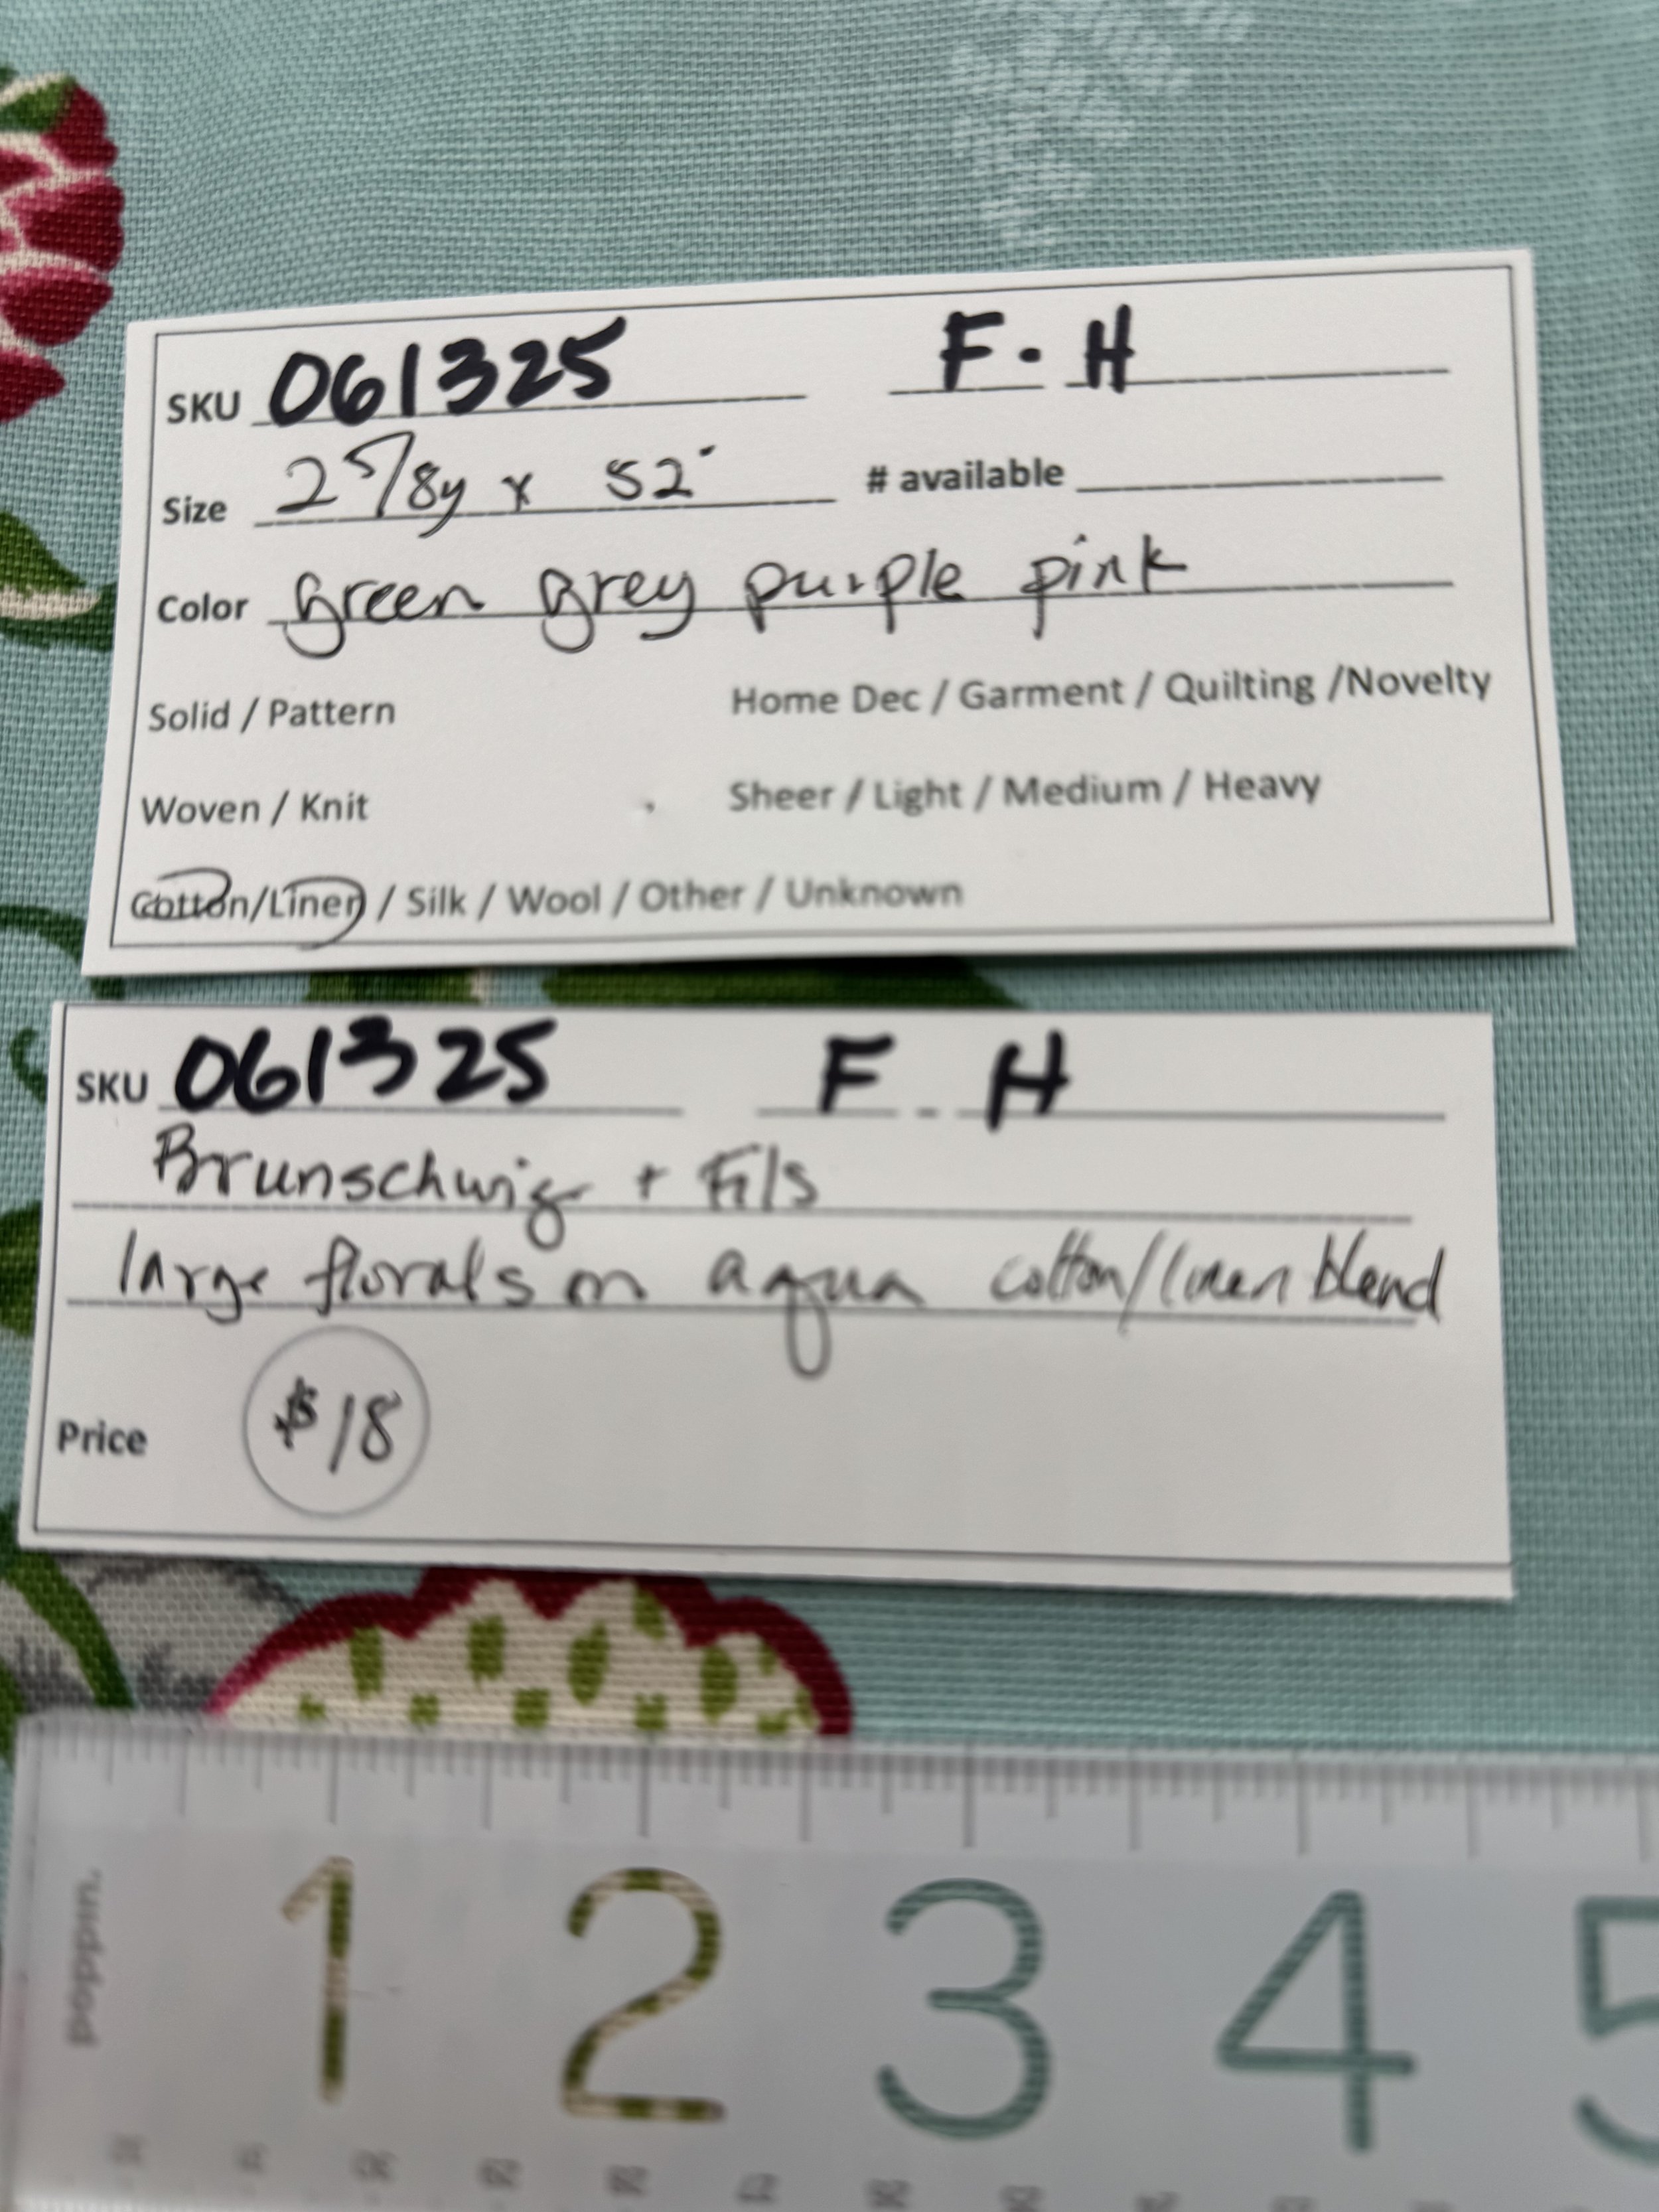 SKU 061325 F - H
Size 2 5/8y x 52" # available
Color green grey purple pink
Solid / Pattern Home Dec / Garment / Quilting /Novelty
Woven / Knit Sheer / Light / Medium / Heavy
Cotton/Linen / Silk / Wool / Other / Unknown
SKU 061325 F - H
Brunschwig + Fils
large florals on aqua cotton/linen blend
Price $18
1 2 3 4 5
poppin.